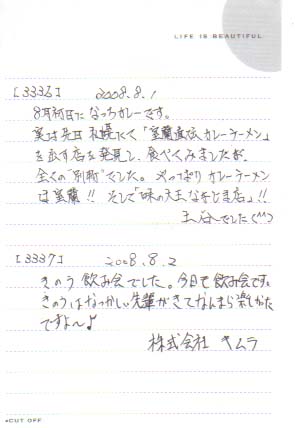 LIFE IS BEAUTIFUL
[3336] 2008.8.1
8月初日になっちカレーです。
実は先日 札幌にて「室蘭直伝カレーラーメン」
を出す店を発見し、食べてみましたが、
全くの"別物"でした。やっぱりカレーラーメン
は室蘭!! そして「味の大王 なかじま店」!!
玉谷でした(^^)
[3337] 2008.8.2
きのう飲み会でした。今日も飲み会です。
きのうはなつかしい先輩がきてなんまら楽しかた
ですよ〜♪
株式会社 キムラ
CUT OFF